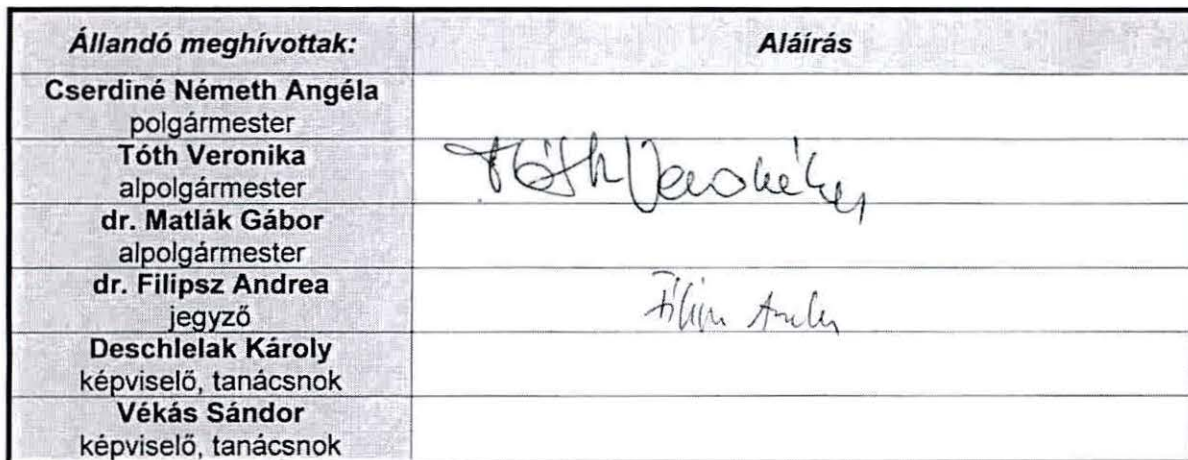 Állandó meghívottak: Aláírás
Cserdiné Németh Angéla
polgármester
Tóth Veronika
alpolgármester
Tóth Veronika
dr. Matlák Gábor
alpolgármester
dr. Filipsz Andrea
jegyző
Deschlelak Károly
képviselő, tanácsnok
Vékás Sándor
képviselő, tanácsnok